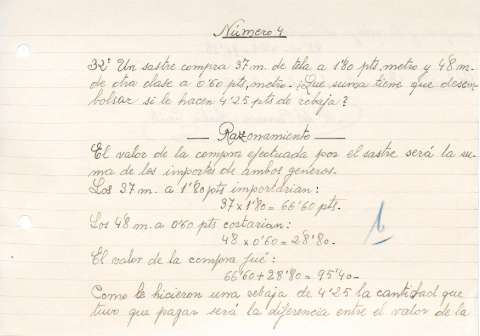 Número 4
32ª Un sastre compra 37 m. de tela a 1'80 pts, metro y 48 m.
de otra clase a 0'60 pts, metro. ¿Que suma tiene que desem-
bolsar si le hacen 4'25 pts de rebaja?
— Razonamiento —
El valor de la compra efectuada por el sastre será la su-
ma de los importes de ambos generos.
Los 37 m. a 1'80 pts importarian:
37 x 1'80 = 66'60 pts.
Los 48 m. a 0'60 pts costarian:
48 x 0'60 = 28'80.
El valor de la compra fué:
66'60 + 28'80 = 95'40.
Como le hicieron una rebaja de 4'25 la cantidad que
tuvo que pagar será la diferencia entre el valor de la